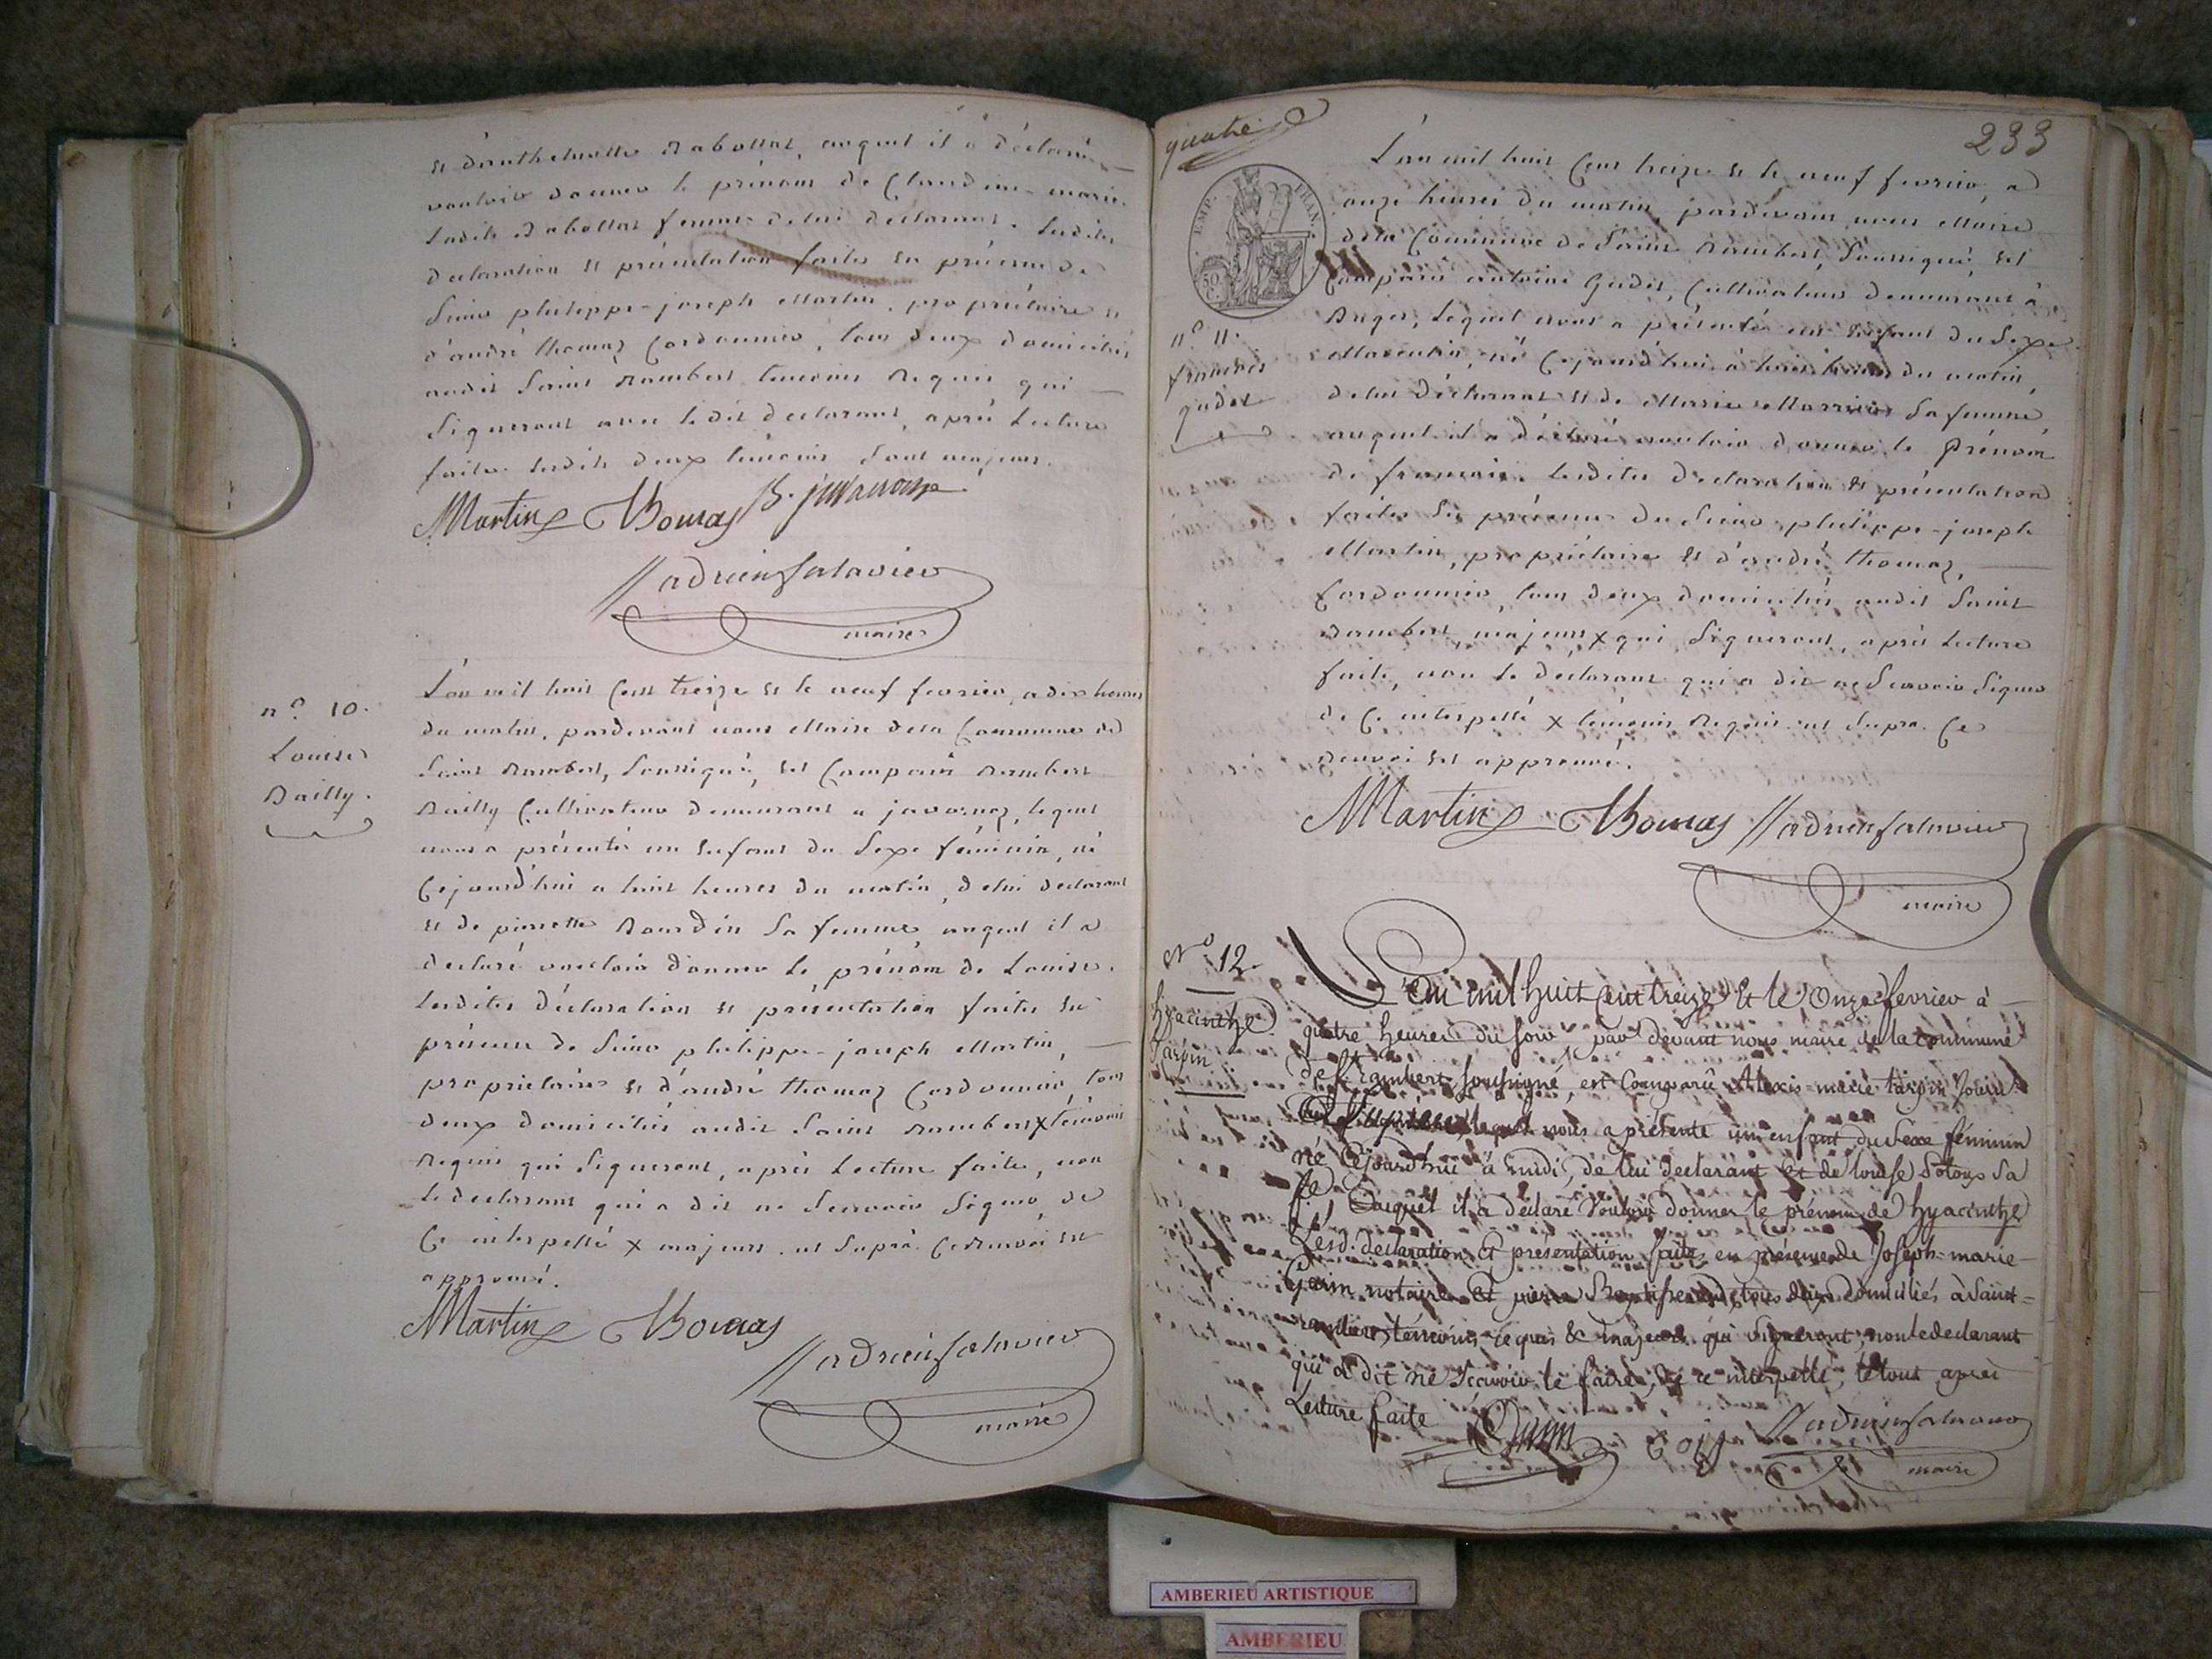 et d'anthelmette Rabollat, auquel il a déclaré
vouloir donner le prénom de Claudine-marie.
Ladite Rabollat femme de lui déclarant. Lesdites
declaration et présentation faites en présence de
Sieur philippe-joseph Martin, propriétaire et
d'andré thomas Cordonnier, tous deux domiciliés
audit Saint Rambert témoins Requis qui
Signeront avec ledit declarant, après Lecture
faite. Lesdits deux témoins sont majeurs.
Martin Thomas
adrien Salavier
maire
n.º 10.
Louise
Bailly.
L'an mil huit Cent treize et le neuf fevrier, a dix heures
du matin, pardevant nous Maire de la Commune de
Saint Rambert, Soussigné, est Comparu Rambert
Bailly Cultivateur demeurant a javornoz, lequel
nous a présenté un Enfant du Sexe féminin, né
Cejourd'hui a huit heures du matin, de lui declarant
et de pierrette Bourdin Sa femme, auquel il a
declaré vouloir donner le prénom de Louise.
Lesdites déclaration et présentation faites en
présence de Sieur philippe-joseph Martin,
propriétaire et d'andré thomas Cordonnier, tous
deux domiciliés audit Saint Rambert x témoins
Requis qui Signeront, après Lecture faite, non
le declarant qui a dit ne Scavoir Signer, de
Ce interpellé x majeurs. ut Suprà. Ce Renvoi est
approuvé.
Martin Thomas
adrien Salavier
maire
quatre
233
EMP. FRAN.
50 C.
n.º 11.
francois
gudet
L'an mil huit Cent treize et le neuf fevrier, a
onze heures du matin, pardevant nous Maire
de la Commune de Saint Rambert, Soussigné, est
Comparu antoine Gudet, Cultivateur demeurant à
Angès, Lequel nous a présenté un Enfant du Sexe
Masculin, né Cejourd'hui à huit heures du matin,
de lui déclarant et de Marie Sa femme
auquel il a déclaré vouloir donner le Prénom
de francois. Lesdites declaration et présentation
faites En présence du Sieur philippe-joseph
Martin, propriétaire et d'andré thomas,
Cordonnier, tous deux domiciliés audit Saint
Rambert, majeurs x qui Signeront, après Lecture
faite, non le declarant qui a dit ne Scavoir Signer
de Ce interpellé x témoins Requis ut Supra. Ce
Renvoi est approuvé.
Martin Thomas adrien Salavier
maire
Nº 12.
hyacinthe
Tarpin
L'an mil huit Cent treize Et le Onze fevrier à
quatre heures du soir, par devant nous maire de la commune
de St Rambert, soussigné, est Comparû Alexis marie tarpin
lequel nous a présenté un enfant du Sexe féminin
né Cejourdhui à midi, de lui declarant et de louise Sa
fe. Auquel il a declaré Vouloir donner le prénom de hyacinthe
Lesd. declaration et presentation faites en présence de Joseph-marie
Garin notaire Et pierre tous deux domiciliés à Saint-
rambert, témoins requis & majeurs qui signeront, non le declarant
qui a dit ne Scavoir le faire, de ce interpellé, le tout après
Lecture faite
Garin
adrien Salavier
maire
AMBERIEU ARTISTIQUE
AMBERIEU